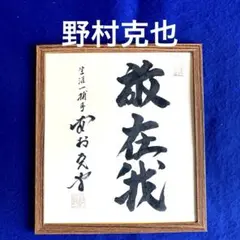 野村克也
敌在我
生涯一捕手
野村克也